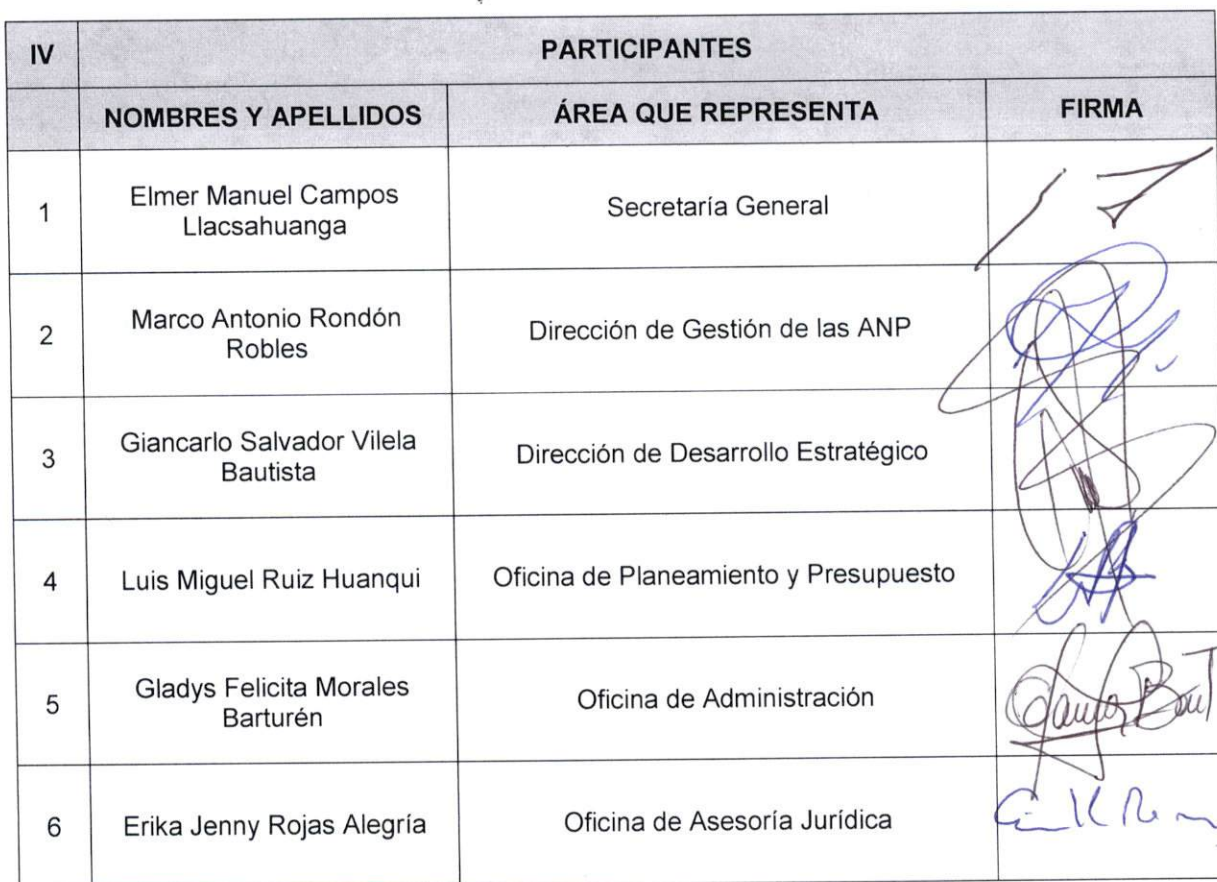 IV PARTICIPANTES
NOMBRES Y APELLIDOS ÁREA QUE REPRESENTA FIRMA
1 Elmer Manuel Campos Llacsahuanga Secretaría General
2 Marco Antonio Rondón Robles Dirección de Gestión de las ANP
3 Giancarlo Salvador Vilela Bautista Dirección de Desarrollo Estratégico
4 Luis Miguel Ruiz Huanqui Oficina de Planeamiento y Presupuesto
5 Gladys Felicita Morales Barturén Oficina de Administración
6 Erika Jenny Rojas Alegría Oficina de Asesoría Jurídica